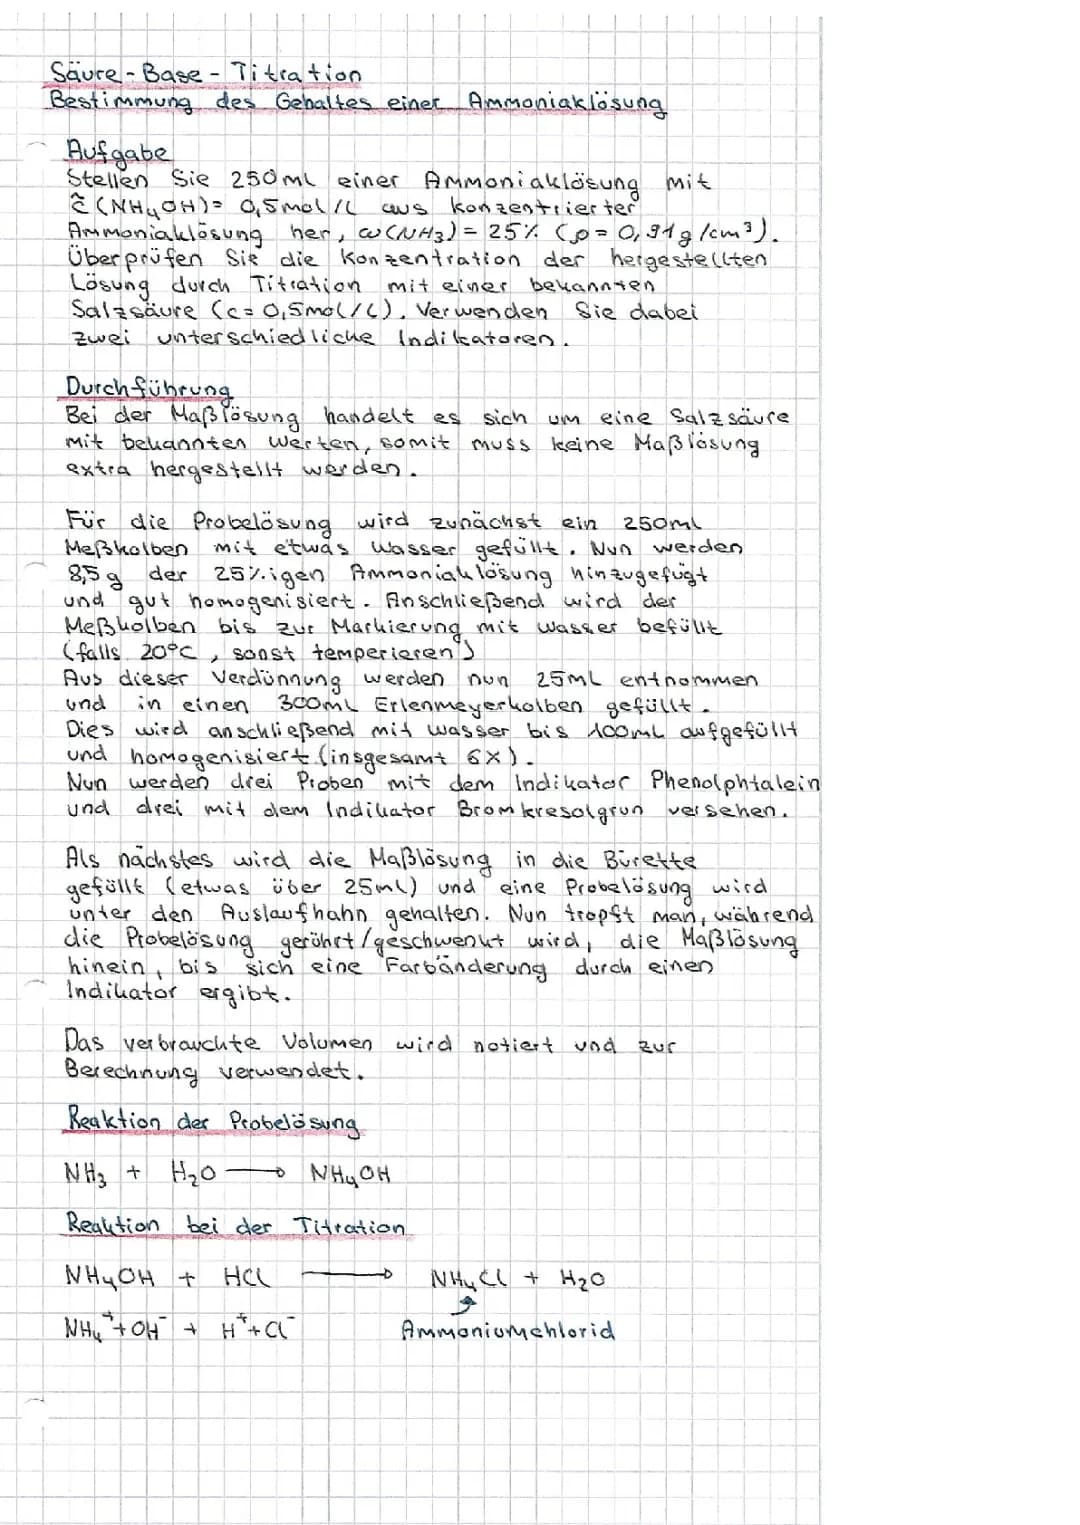 Säure-Base-Titration
Bestimmung des Gehaltes einer Ammoniaklösung
Aufgabe
Stellen Sie 250ml einer Ammoniaklösung mit
c̃ (NH₄OH)= 0,5mol/l aus konzentrierter
Ammoniaklösung her, ω(NH₃)= 25% (ρ= 0,91g/cm³).
Überprüfen Sie die Konzentration der hergestellten
Lösung durch Titration mit einer bekannten
Salzsäure (c= 0,5mol/L). Verwenden Sie dabei
zwei unterschiedliche Indikatoren.
Durchführung
Bei der Maßlösung handelt es sich um eine Salzsäure
mit bekannten Werten, somit muss keine Maßlösung
extra hergestellt werden.
Für die Probelösung wird zunächst ein 250ml
Meßkolben mit etwas Wasser gefüllt. Nun werden
8,5g der 25%igen Ammoniaklösung hinzugefügt
und gut homogenisiert. Anschließend wird der
Meßkolben bis zur Markierung mit Wasser befüllt
(falls 20°C, sonst temperieren)
Aus dieser Verdünnung werden nun 25ml entnommen
und in einen 300ml Erlenmeyerkolben gefüllt.
Dies wird anschließend mit Wasser bis 100ml aufgefüllt
und homogenisiert (insgesamt 6x).
Nun werden drei Proben mit dem Indikator Phenolphtalein
und drei mit dem Indikator Bromkresolgrün versehen.
Als nächstes wird die Maßlösung in die Bürette
gefüllt (etwas über 25ml) und eine Probelösung wird
unter den Auslaufhahn gehalten. Nun tropft man, während
die Probelösung gerührt/geschwenkt wird, die Maßlösung
hinein, bis sich eine Farbänderung durch einen
Indikator ergibt.
Das verbrauchte Volumen wird notiert und zur
Berechnung verwendet.
Reaktion der Probelösung
NH₃ + H₂O → NH₄OH
Reaktion bei der Titration
NH₄OH + HCl → NH₄Cl + H₂O
NH₄⁺+OH⁻ + H⁺+Cl⁻ Ammoniumchlorid